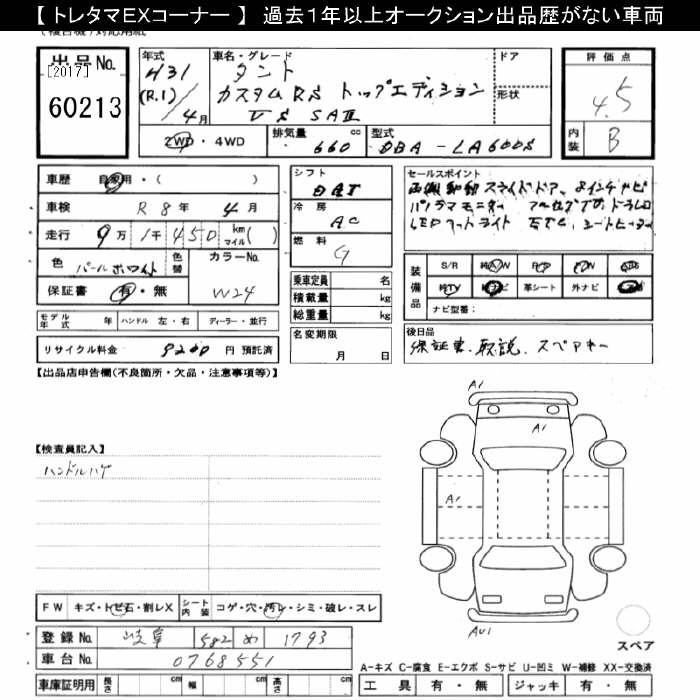 【 トレタマEXコーナー 】 過去１年以上オークション出品歴がない車両
出品 No.
[2017]
60213
年式
H31
(R.1)
4月
車名・グレード
タント
カスタムRS トップエディション
VS SAⅢ
ドア
形状
評価点
4.5
内装
B
2WD・4WD
排気量
660 cc
型式
DBA-LA600S
車歴 自家用・( )
車検 R8年 4月
走行 9万 1千 450 km マイル( )
色 パールホワイト 色替
カラーNo.
W24
保証書 有・無
モデル年式 年 ハンドル 左・右 ディーラー・並行
リサイクル料金 9200 円 預託済
シフト
冷房
AC
燃料
G
乗車定員 名
積載量 kg
総重量 kg
名変期限
月 日
セールスポイント
両側電動スライドドア、8インチナビ
パノラマモニター
LEDヘッドライト シートヒーター
装備品
S/R
革シート
外ナビ
ナビ型番:
後日品
保証書、取説、スペアキー
【出品店申告欄(不良箇所・欠品・注意事項等)】
【検査員記入】
ハンドルハゲ
A1
A1
A1
AU1
スペア
FW キズ・トビ石・割レX シート内装 コゲ・穴・汚レ・シミ・破レ・スレ
登録 No. 岐阜 582 め 1793
車台 No. 0768551
車庫証明用 長さ cm 幅 cm 高さ cm
A-キズ C-腐食 E-エクボ S-サビ U-凹ミ W-補修 XX-交換済
工具 有・無 ジャッキ 有・無